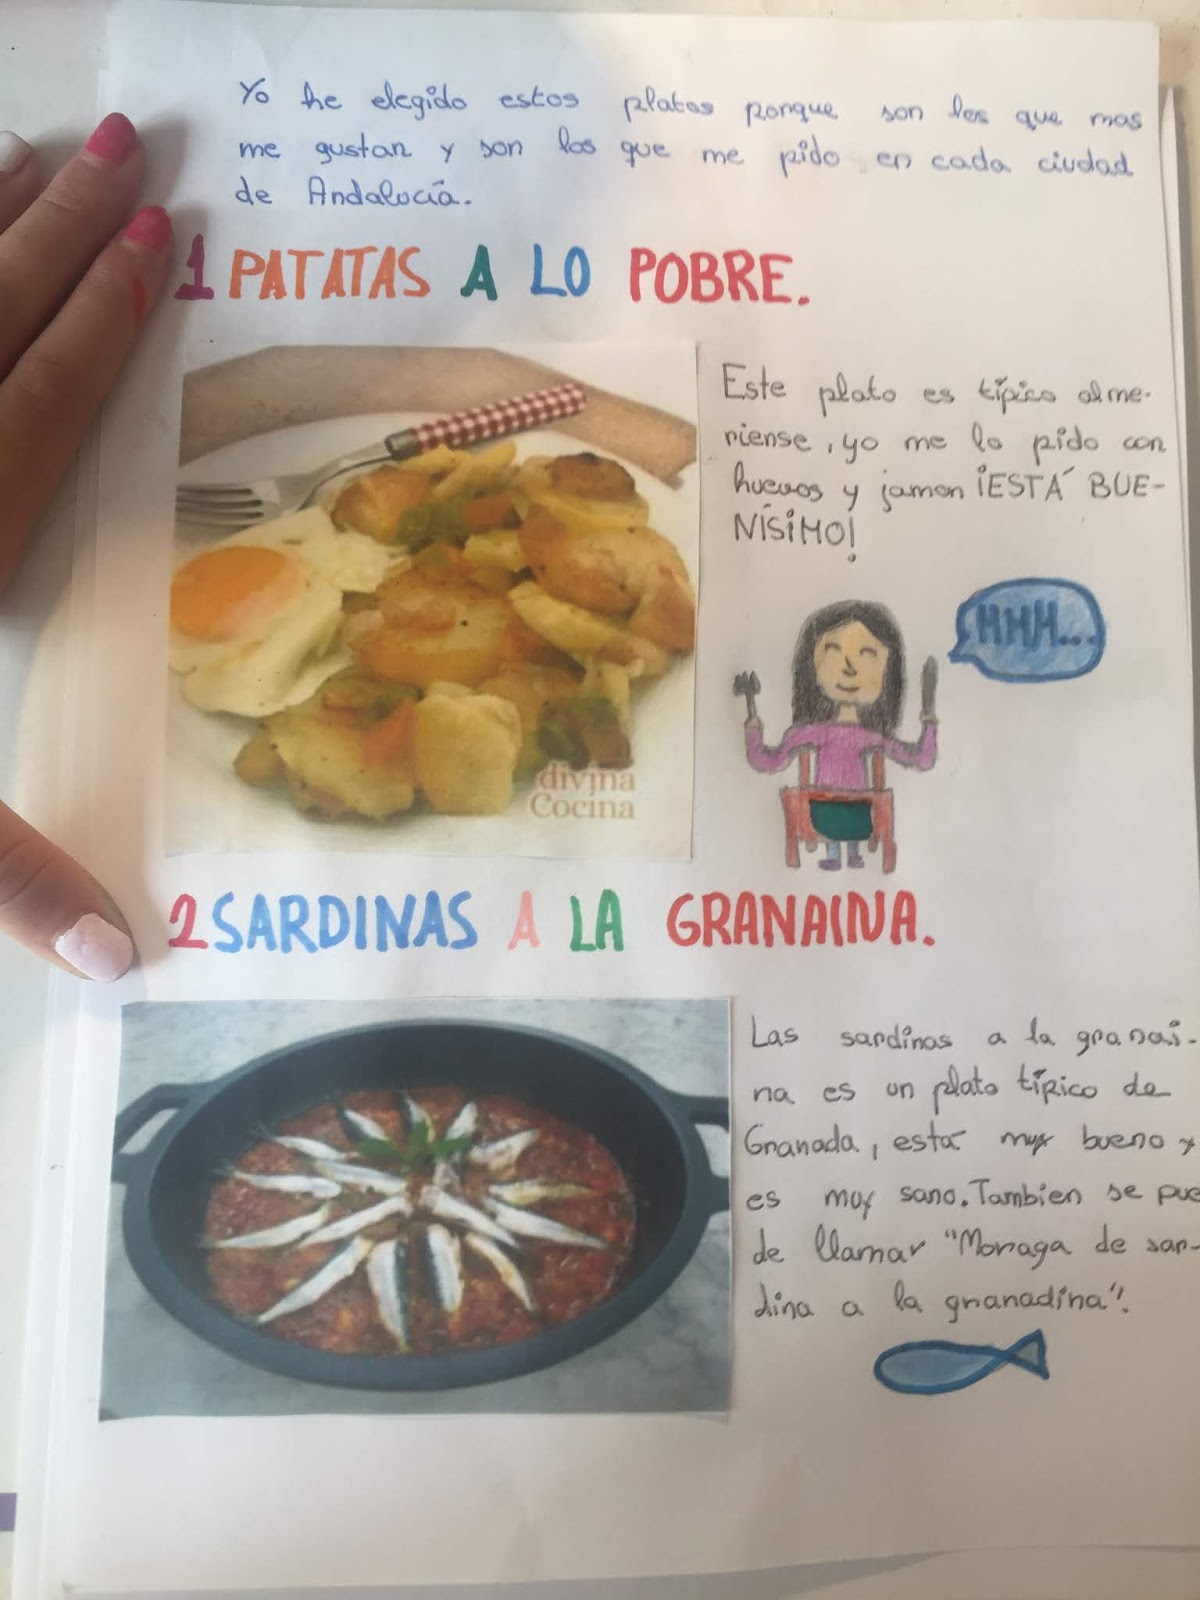 Yo he elegido estos platos porque son los que mas
me gustan y son los que me pido en cada ciudad
de Andalocía.
1 PATATAS A LO POBRE.
Este plato es típico alme-
riense, yo me lo pido con
huevos y jamon ¡ESTÁ BUE-
NÍSIMO!
MMM...
divina
Cocina
2 SARDINAS A LA GRANAINA.
Las sardinas a la granai-
na es un plato típico de
Granada, está muy bueno y
es muy sano. Tambien se pue
de llamar "Moraga de sar-
dina a la granadina".